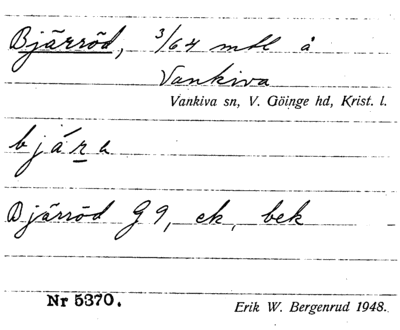 Bjärröd, 3/64 mtl å
Vankiva
Vankiva sn, V. Göinge hd, Krist. l.
bjára
Djärröd G9, ek, bek
Nr 5370.
Erik W. Bergenrud 1948.